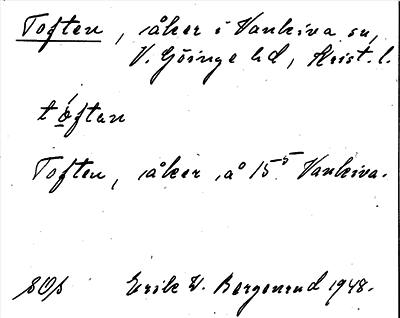 Toften, åker i Vankiva sn,
V. Göinge hd, Krist. l.
tòftan
Toften, åker, å 15⁵ Vankiva.
SOs Erik W. Bergenrud 1948.